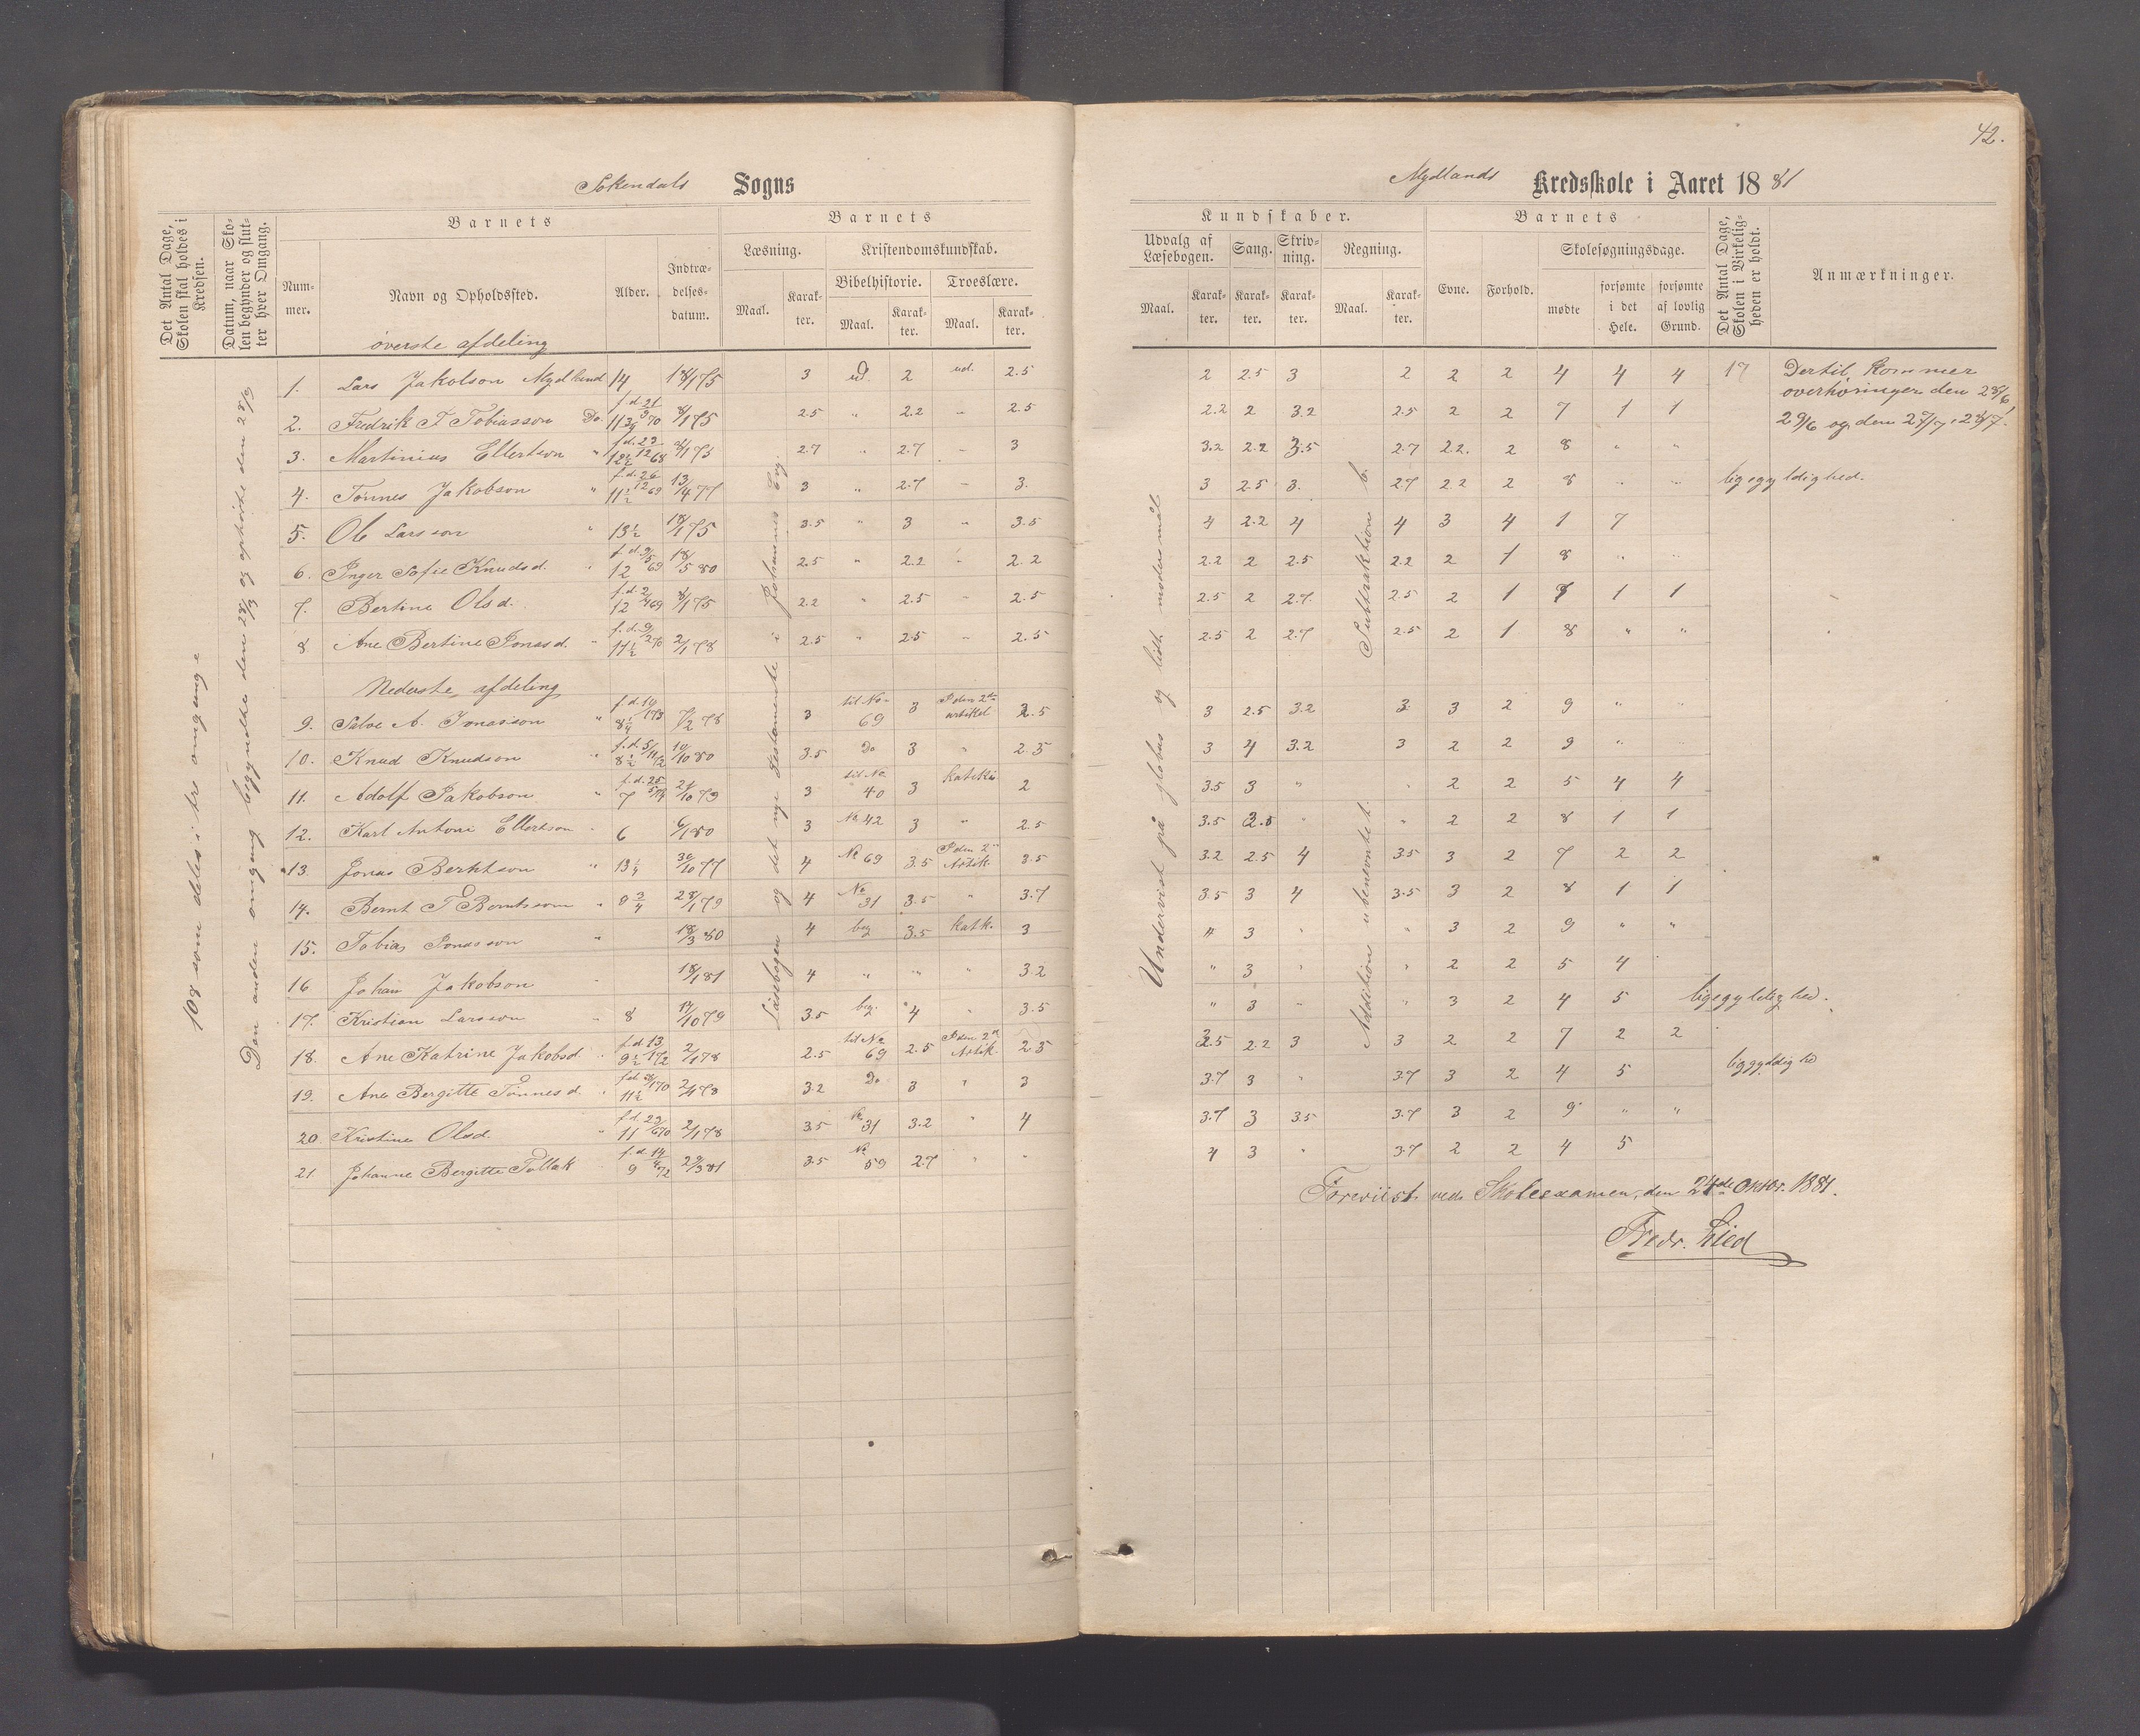 42.
Sokendals Sogns
Mydlands Kredsskole i Aaret 1881
Det Antal Dage, Skolen skal holdes i Kredsen.
Datum, naar Skolen begynder og slutter hver Omgang.
Barnets
Nummer.
Navn og Opholdssted.
Alder.
Indtrædelsesdatum.
Barnets
Læsning.
Maal.
Karakter.
Kristendomskundskab.
Bibelhistorie.
Maal.
Karakter.
Troeslære.
Maal.
Karakter.
Kundskaber.
Udvalg af Læsebogen.
Maal.
Karakter.
Sang.
Karakter.
Skrivning.
Karakter.
Regning.
Maal.
Karakter.
Barnets
Evne.
Forhold.
Skolesøgningsdage.
mødte
forsømte i det Hele.
forsømte af lovlig Grund.
Det Antal Dage, Skolen i Virkeligheden er holdt.
Anmærkninger.
108 som deles i tre omgange
Den anden omgang begyndte den 28/3 og ophørte den 28/9
Läsebogen og det nye Testamente i Johannes Evg.
Undervist på globus og lidt modersmål
Subtraktion b.
Addition ubenevntet.
øverste afdeling
1. Lars Jakobson Mydland 14 18/1 75 3 ud. 2 ud. 2.5 2 2.5 3 2 2 2 4 4 4 17 Dertil kommer
overhøringer den 28/6
2. Fredrik T Tobiasson Do 11 3/4 f.d. 21/9 70 8/1 75 2.5 " 2.2 " 2.5 2.2 2 3.2 2.5 2 2 7 1 1 29/6 og den 27/7, 28/7.
3. Martinius Ellertson " 12 1/2 f.d. 22/12 68 8/1 75 2.7 " 2.7 " 3 3.2 2.2 3.5 2.7 2.2. 2 8 " "
4. Tønnes Jakobson " 11 1/2 f.d. 26/12 69 13/4 77 3 " 2.7 " 3. 3 2.5 3. 2.7 2.2 2 8 " " ligegyldighed.
5. Ole Larsson " 13 1/2 18/1 75 3.5 " 3 " 3.5 4 2.2 4 4 3 4 1 7
6. Inger Sofie Knudsd. " 12 f.d. 9/5 69 18/5 80 2.5 " 2.2 " 2.2 2.2 2 2.5 2.2 2 1 8 " "
7. Bertine Olsd. 12 f.d. 2/4 69 8/1 75 2.2 " 2.5 " 2.5 2.5 2 2.7. 2.5 2 1 7 1 1
8 Ane Bertine Jonasd. " 11 1/2 f.d. 9/2 70 2/1 78 2.5 " 2.5 " 2.5 2.5 2 2.7 2.5 2 1 8 " "
Nederste afdeling
9. Salve A. Jonasson " 8 1/4 f.d. 14/1 73 7/2 78 3 til No 69 3 I den 2den artikel 2.5 3 2.5 3.2 3 3 2 9 " "
10. Knud Knudson " 8 1/2 f.d. 5/11 72 10/10 80 3.5 Do 3 " 2.5 3 4 3.2 3 2 2 9 " "
11. Adolf Jakobson " 7 f.d. 25/5 74 21/10 79 3 til No 40 3 katekis 2 3.5 3 " " 2 2 5 4 4
12. Karl Antoni Ellertson " 6 6/1 80 3 No 42 3 " 2.5 3.5 2.5 " " 2 2 8 1 1
13. Jonas Berntson " 13 1/4 30/10 77 4 No 69 3.5 I den 2den Artik. 3.5 3.2 2.5 4 3.5 3 2 7 2 2
14. Bernt T Berntsson " 9 3/4 28/1 79 4 No 31 3.5 " 3.7 3.5 3 4 3.5 3 2 8 1 1
15. Tobias Jonasson " 18/3 80 4 beg 3.5 katk. 3 " 3 " " 3 2 9 " "
16 Johan Jakobson " 18/1 81 4 " " " 3.2 " 3 " " 2 2 5 4
17. Kristian Larsson " 8 17/10 79 3.5 beg. 4 " 3.5 " 3 " " 3 2 4 5 ligegyldighed.
18. Ane Katrine Jakobsd. " 9 1/2 f.d. 13/1 72 2/1 78 2.5 til No 69 2.5 I den 2den Artik. 2.5 2.5 2.2 3 3 2 2 7 2 2
19. Ane Bergitte Tønnesd. " 11 1/2 2/1 78 3.2 Do 3 " 3 3.7 3 " 3.7 3 2 4 5 ligegyldighe
20. Kristine Olsd. " 11 f.d. 23/6 70 2/1 78 3.5 No 31 3.2 " 4 3.7 3 3.5 3.7 3 2 9 " "
21. Johanne Bergitte Tollak 9 f.d. 14/4 72 29/3 81 3.5 No 59 2.7 " " 4 3 " 3.7 2 2 4 5
Foreviist ved Skoleexamen, den 24de Oktbr. 1881.
Fredr. Lied